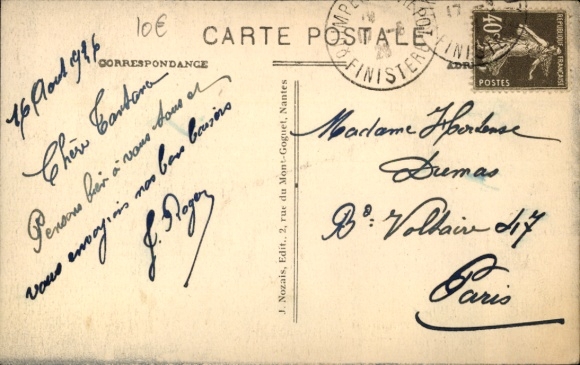 10€
CARTE POSTALE
CORRESPONDANCE
16 Août 1926
Chère Tantane
Pensons bien à vous tous et
vous envoyons nos bons baisers
J. Roger
J. Nozais, Edit., 2, rue du Mont-Goguet, Nantes
FINISTERE
FINIST
40c
REPUBLIQUE FRANÇAISE
POSTES
Madame Hortense
Dumas
Bd: Voltaire 47
Paris